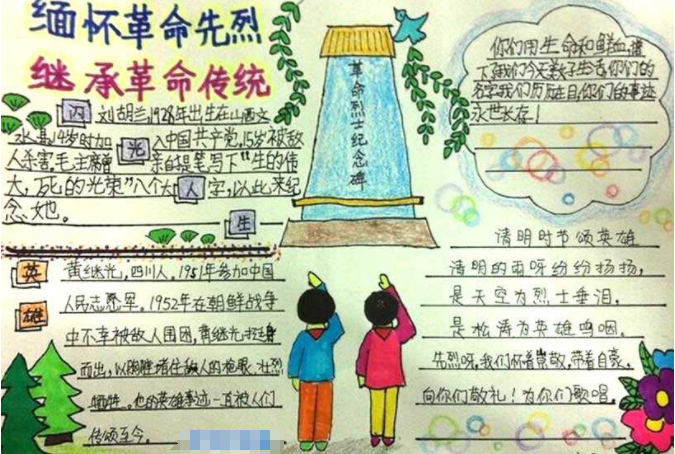 缅怀革命先烈
继承革命传统
闪光人生
刘胡兰,1928年出生在山西文
水县,14岁时加入中国共产党,15岁被敌
人杀害。毛主席曾亲自提笔写下“生的伟
大,死的光荣”八个大字,以此来纪
念她。
革命烈士纪念碑
你们用生命和鲜血,
下我们今天生活,你们的
名字我们历历在目,你们的事迹
永世长存!
英雄
黄继光,四川人。1951年参加中国
人民志愿军。1952年在朝鲜战争
中不幸被敌人围困,黄继光挺身
而出,以胸膛堵住敌人的枪眼,壮烈
牺牲。他的英雄事迹一直被人们
传颂至今。
清明时节颂英雄
清明的雨呀纷纷扬扬,
是天空为烈士垂泪。
是松涛为英雄呜咽。
先烈呀,我们怀着崇敬,带着自豪。
向你们敬礼!为你们歌唱。